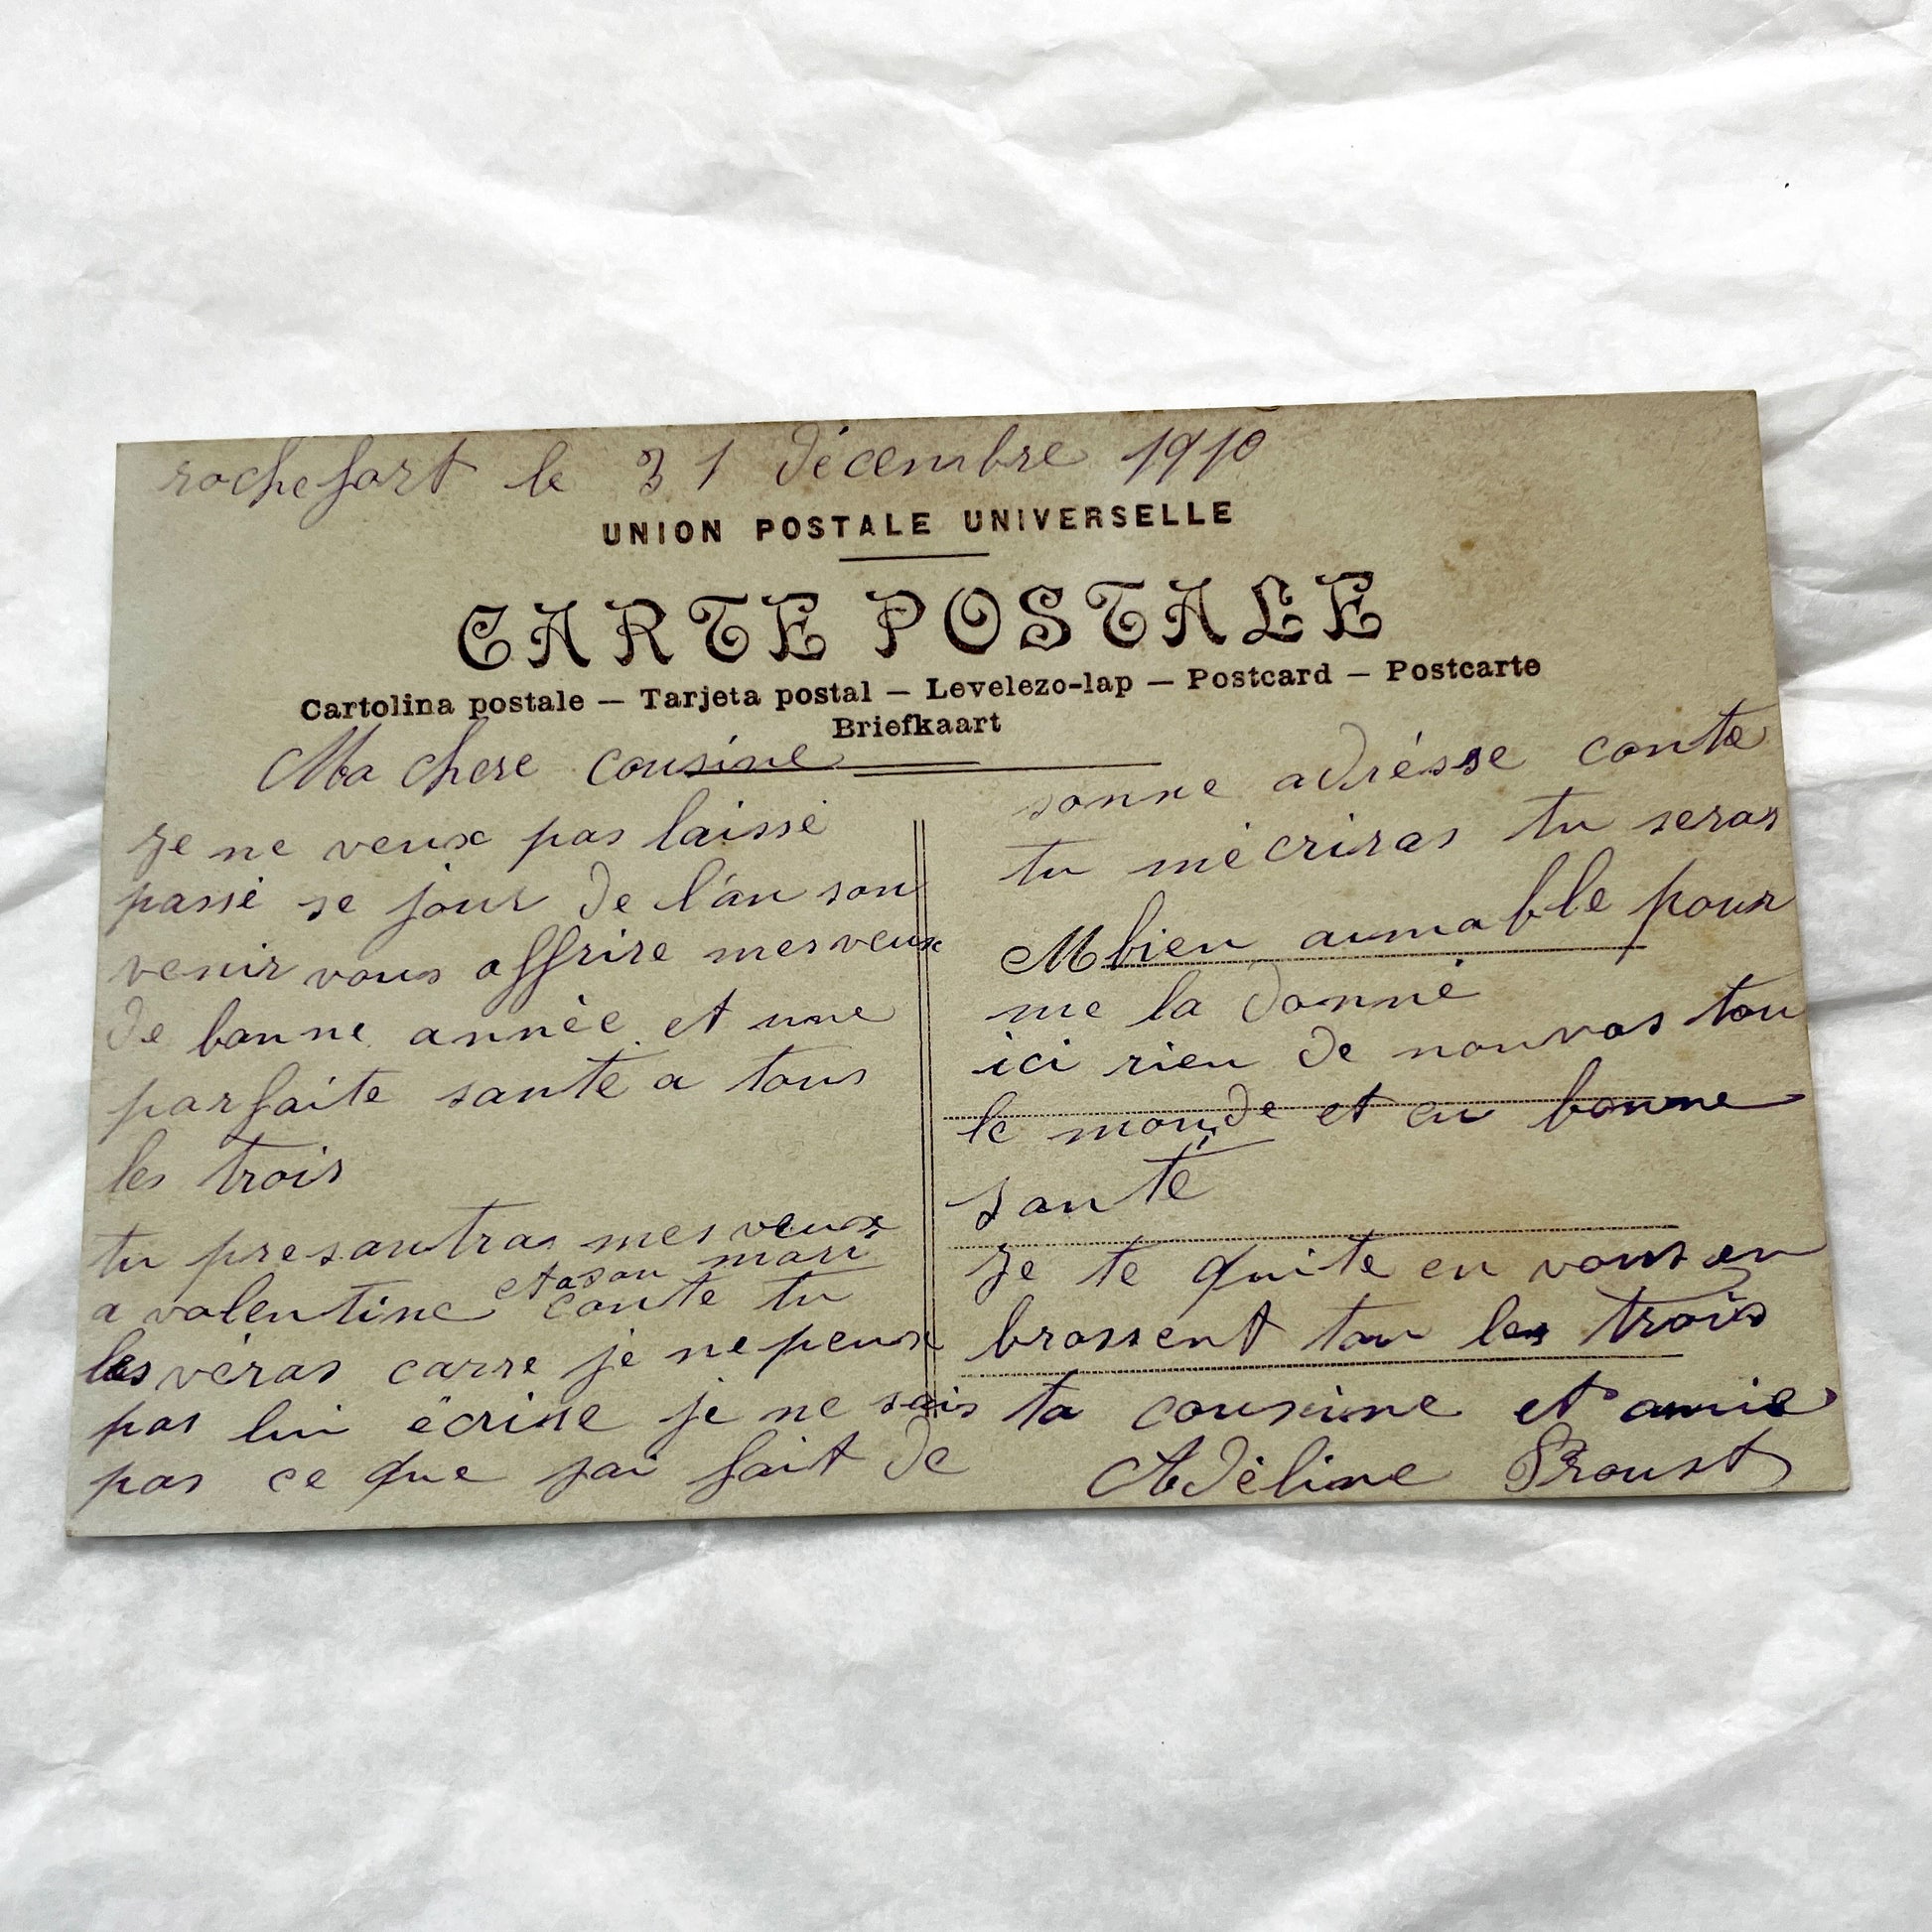 rochefort le 31 décembre 1910
UNION POSTALE UNIVERSELLE
CARTE POSTALE
Cartolina postale — Tarjeta postal — Levelezo-lap — Postcard — Postcarte
Briefkaart
Ma chere cousine
Je ne veux pas laissé
passé se jour de l'an son
venir vous offrire mes veux
de bonne année et une
parfaite sante a tous
les trois
tu presantras mes veux
a valentine et a son mari conte tu
les véras carre je ne peux
pas lui écrire je ne sais
pas ce que jai fait de
sonne adrésse conte
tu mécriras tu seras
M bien aimable pour
me la donné
ici rien de nouvas tou
le monde et en bonne
santé
Je te quite en vous en
brassent tou les trois
ta cousine et amie
Adéline Proust